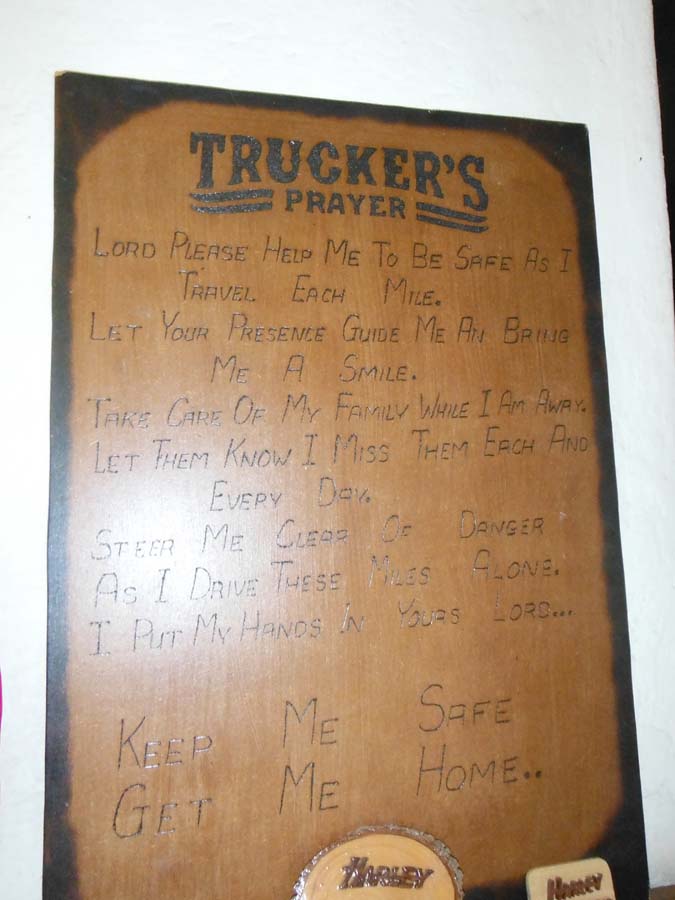 TRUCKER'S
PRAYER
LORD PLEASE HELP ME TO BE SAFE AS I
TRAVEL EACH MILE.
LET YOUR PRESENCE GUIDE ME AN BRING
ME A SMILE.
TAKE CARE OF MY FAMILY WHILE I AM AWAY.
LET THEM KNOW I MISS THEM EACH AND
EVERY DAY.
STEER ME CLEAR OF DANGER
AS I DRIVE THESE MILES ALONE.
I PUT MY HANDS IN YOURS LORD...
KEEP ME SAFE
GET ME HOME..
HARLEY
HARLEY